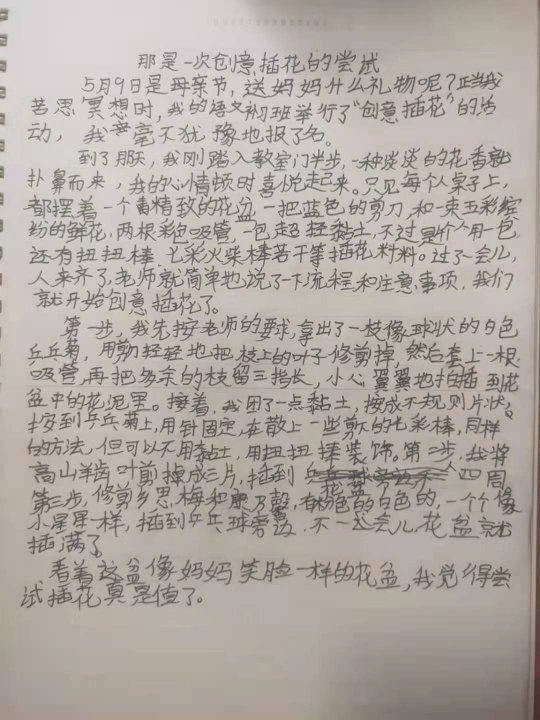 那是一次创意插花的尝试
5月9日是母亲节，送妈妈什么礼物呢？正当我
苦思冥想时，我的语文初班举行了“创意插花”的活
动，我毫不犹豫地报了名。
到了那天，我刚踏入教室门半步，一种淡淡的花香就
扑鼻而来，我的心情顿时喜悦起来。只见每个人桌子上，
都摆着一个精致的花盆，一把蓝色的剪刀，和一束五彩缤
纷的鲜花，两根彩色吸管，一包超轻黏土，不过是个用一包
还有扭扭棒、七彩火柴棒若干等插花材料。过了一会儿，
人来齐了，老师就简单地说了一下流程和注意事项，我们
就开始创意插花了。
第一步，我先按老师的要求，拿出了一枝像球状的白色
乒乓菊，用剪轻轻地把枝上的叶子修剪掉，然后套上一根
吸管，再把多余的枝留三指长，小心翼翼地插到花
盆中的花泥里。接着，我团了一点黏土，按成不规则片状，
按到乒乓菊上，用针固定，在散上一些剪的七彩棒，同样
的方法，但可以不用黏土，用扭扭棒装饰。第二步，我将
高山羊齿叶剪掉成三片，插到花盆四周
第三步，修剪乡思梅和康乃馨，有粉色的白色的，一个个像
小星星一样，插到乒乓球旁边，不一会儿花盆就
插满了。
看着这盆像妈妈笑脸一样的花盆，我觉得尝
试插花真是值了。